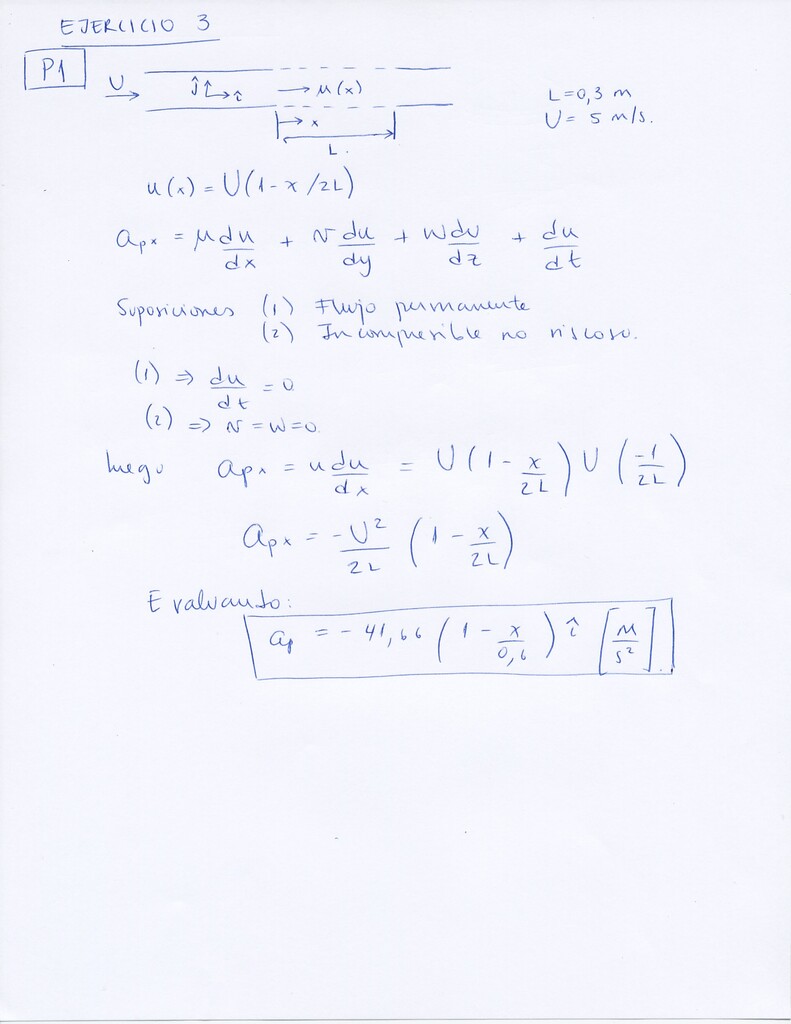 EJERCICIO 3
P1
U
ĵ î
u(x)
L=0,3 m
U= 5 m/s.
x
L.
u(x) = U(1-x/2L)
apx = u du/dx + v du/dy + w du/dz + du/dt
Suposiciones (1) Flujo permanente
(2) Incompresible no viscoso.
(1) => du/dt = 0
(2) => v = w = 0.
luego apx = u du/dx = U(1 - x/2L) U (-1/2L)
apx = -U²/2L (1 - x/2L)
Evaluando:
ap = - 41,66 (1 - x/0,6) î [m/s²]